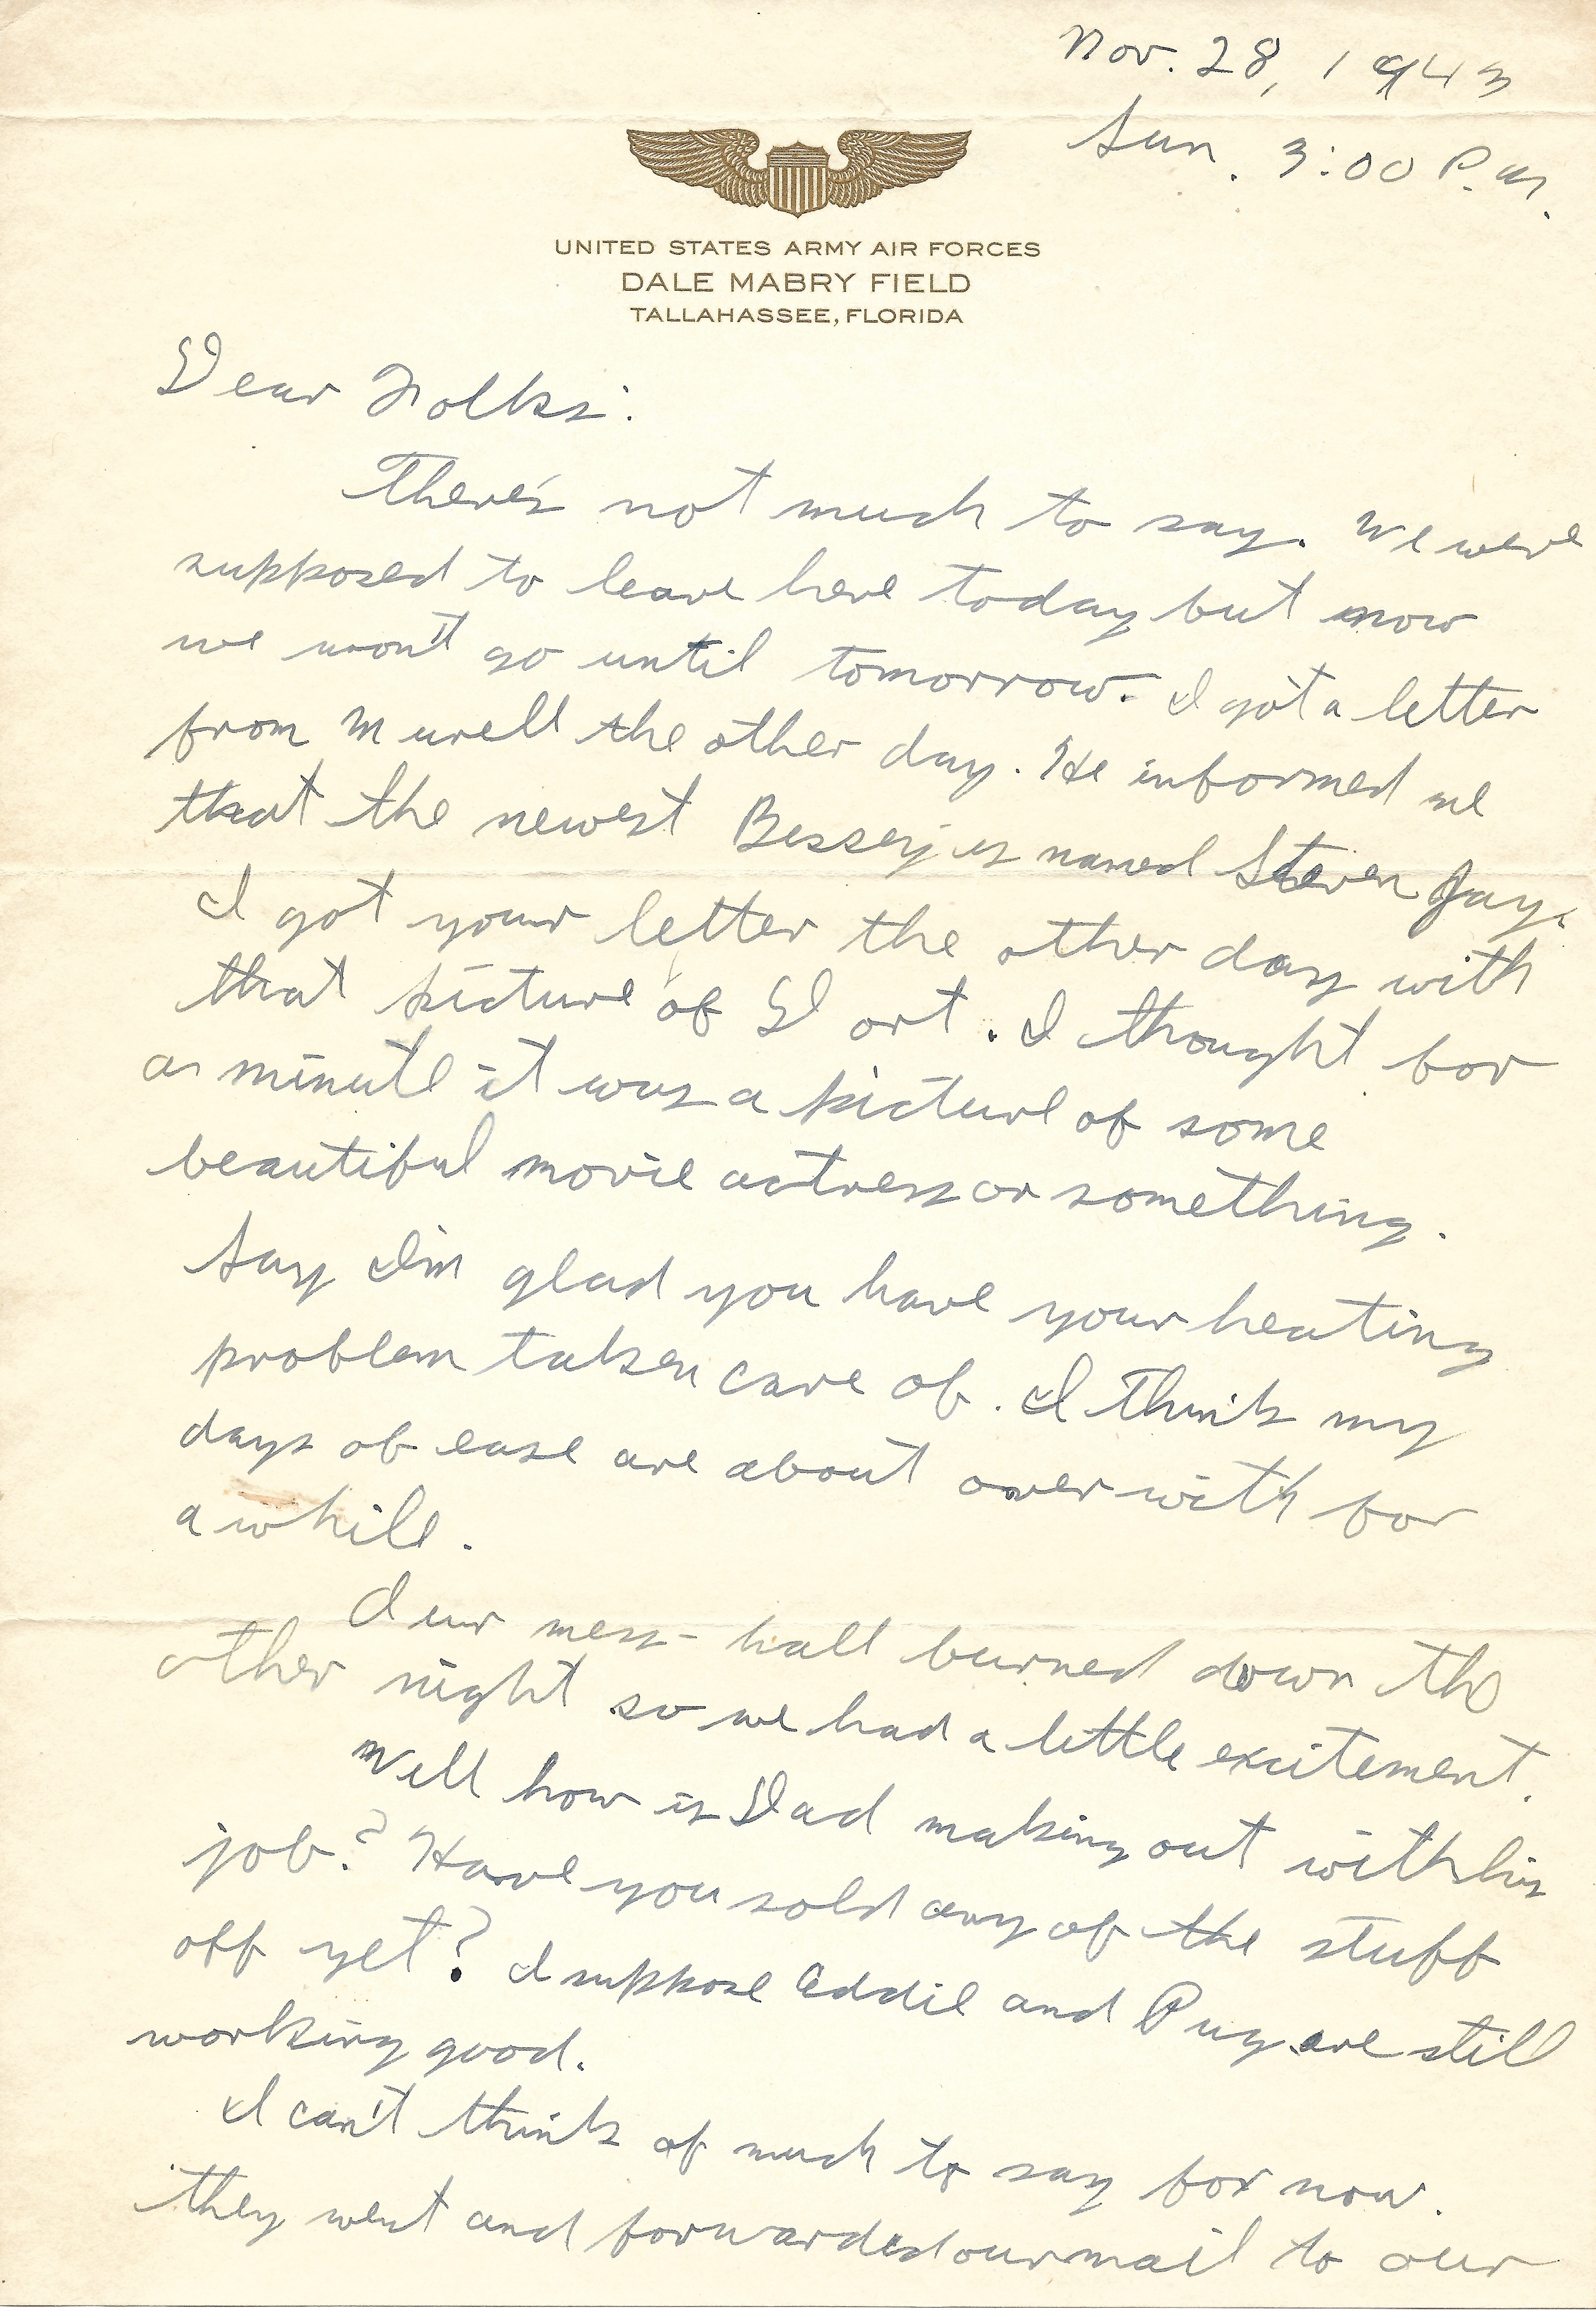 Nov. 28, 1943
Sun. 3:00 P.M.
UNITED STATES ARMY AIR FORCES
DALE MABRY FIELD
TALLAHASSEE, FLORIDA
Dear Folks:
There's not much to say. We were
supposed to leave here today but now
we won't go until tomorrow. I got a letter
from Murell the other day. He informed me
that the newest Bessey is named Steven Jay.
I got your letter the other day with
that picture of Dort. I thought for
a minute it was a picture of some
beautiful movie actress or something.
Say I'm glad you have your heating
problem taken care of. I think my
days of ease are about over with for
a while.
Our mess-hall burned down the
other night so we had a little excitement.
Well how is Dad making out with his
job? Have you sold any of the stuff
off yet? I suppose Eddie and Pug are still
working good.
I can't think of much to say for now.
They went and forwarded our mail to our